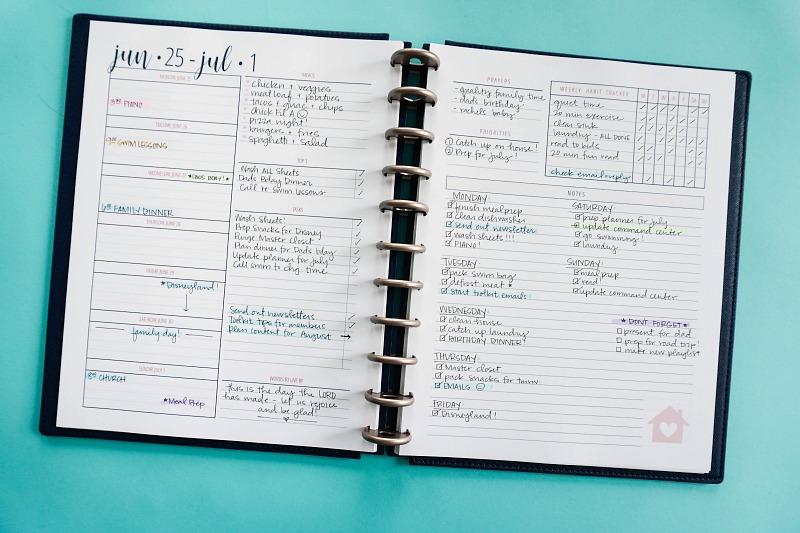 jun • 25 - jul • 1
MONDAY, JUNE 25
3:30 PIANO
TUESDAY, JUNE 26
SWIM LESSONS
WEDNESDAY, JUNE 27
*DADS BDAY!*
6:00 FAMILY DINNER
THURSDAY, JUNE 28
FRIDAY, JUNE 29
*Disneyland!
↓
SATURDAY, JUNE 30
family day!
SUNDAY, JULY 1
CHURCH
*Meal Prep
MENUS
chicken + veggies
meatloaf + potatoes
tacos + guac + chips
chick Fil A ☺
pizza night!
burgers + fries
spaghetti + salad
TOP 3
Wash All Sheets
Dads Bday Dinner
Call re Swim Lessons
TASKS
Wash Sheets!
Prep Snacks for Disney
Purge Master Closet
Plan dinner for Dads bday
Update planner for July
Call Swim to chg. time
Send out newsletters
Toolkit tips for members
Plan content for August →
WORDS TO LIVE BY
This is the day the LORD
has made - let us rejoice
and be glad
PRAYERS
- quality family time
- dads birthday
- rachel's baby
PRIORITIES
① Catch up on house!
② Prep for July!
WEEKLY HABIT TRACKER
M T W T F S S
quiet time
20 min exercise
clean sink
laundry - ALL DONE
read to kids
20 min fun read
check email + reply
NOTES
MONDAY:
☑ finish meal prep
☑ clean dishwasher
☑ send out newsletter
☑ wash sheets!!!
☑ PIANO!
TUESDAY:
☑ pack swim bag
☑ defrost meat *
☑ start toolkit emails
WEDNESDAY:
☑ clean house
☑ catch up laundry
☑ BIRTHDAY DINNER!
THURSDAY:
☑ Master closet
☑ pack snacks for tmrw
☑ EMAILS ☺
FRIDAY:
☑ Disneyland!
SATURDAY:
☑ prep planner for july
☑ update command center
☑ go swimming!
☑ laundry
SUNDAY:
☑ meal prep
☑ read!
☑ update command center
*DON'T FORGET*
☐ present for dad
☐ prep for road trip!
☐ make new playlist